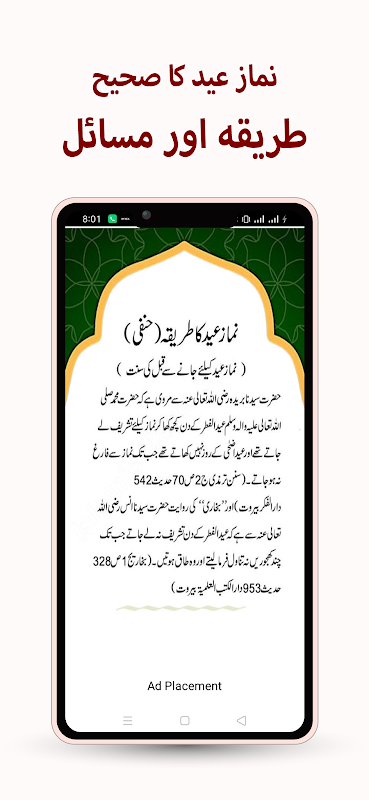 نماز عید کا صحیح
طریقه اور مسائل
8:01
نماز عید کا طریقہ (حنفی)
( نماز عید کیلئے جانے سے قبل کی سنت )
حضرت سیدنا بریدہ رضی اللہ تعالی عنہ سے مروی ہے کہ حضرت محمد صلی
اللہ تعالی علیہ والہ وسلم عید الفطر کے دن کچھ کھا کر نماز کیلئے تشریف لے
جاتے تھے اور عید اضحٰی کے روز نہیں کھاتے تھے جب تک نماز سے فارغ
نہ ہو جاتے۔ (سنن ترمذی ج2ص70حدیث542
دارالفکر بیروت) اور ”بخاری“ کی روایت حضرت سیدنا انس رضی اللہ
تعالی عنہ سے ہے کہ عید الفطر کے دن تشریف نہ لے جاتے جب تک
چند کھجوریں نہ تناول فرما لیتے اور وہ طاق ہوتیں۔ (بخاریج1ص328
حدیث953دارالکتب العلمیۃ بیروت)
Ad Placement